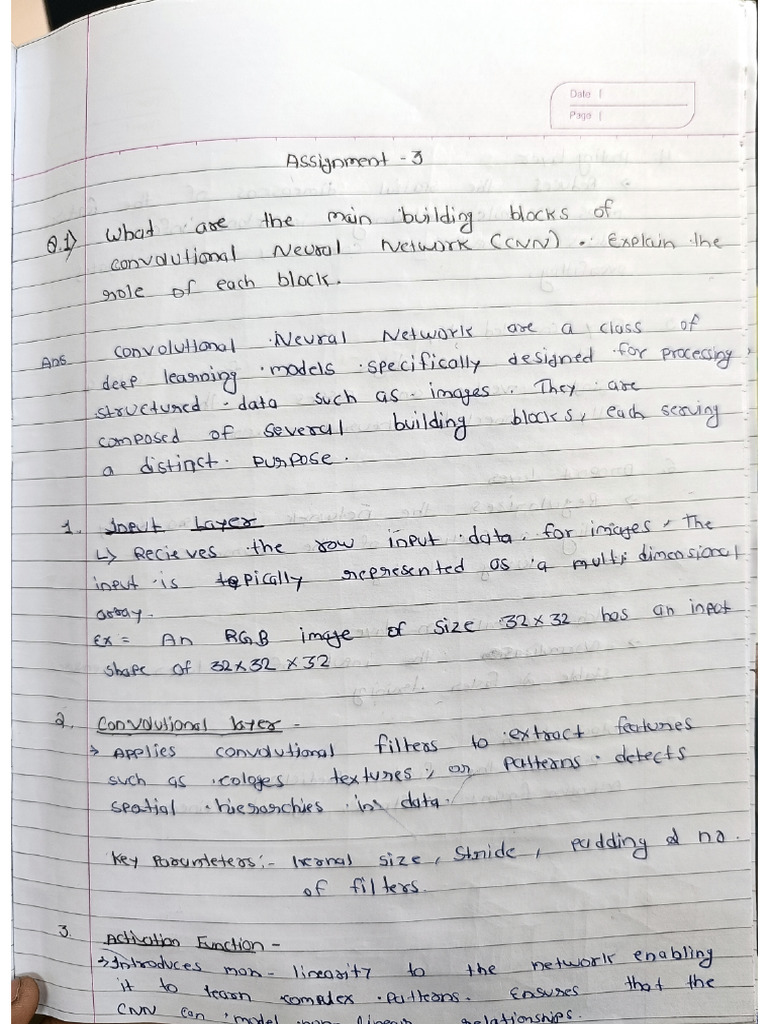 Date |
Page |
Assignment - 3
Q.1) What are the main building blocks of
convolutional Neural Network (CNN). Explain the
role of each block.
Ans convolutional Neural Network are a class of
deep learning models specifically designed for processing,
structured data such as images. They are
composed of several building blocks, each serving
a distinct purpose.
1. Input Layer
↳ Recieves the row input data. for images, The
input is typically represented as a multi dimensional
array.
Ex = An RGB image of size 32×32 has an input
shape of 32×32 ×32
2. Convolutional layer -
→ Applies convolutional filters to extract features
such as textures, or patterns. detects
spatial hierarchies in data.
Key Parameters:- kernal size, Stride, padding & no.
of filters.
3. Activation Function -
→ Introduces non-linearity to the network enabling
it to learn complex patterns. Ensures that the
CNN can model non linear relationships.